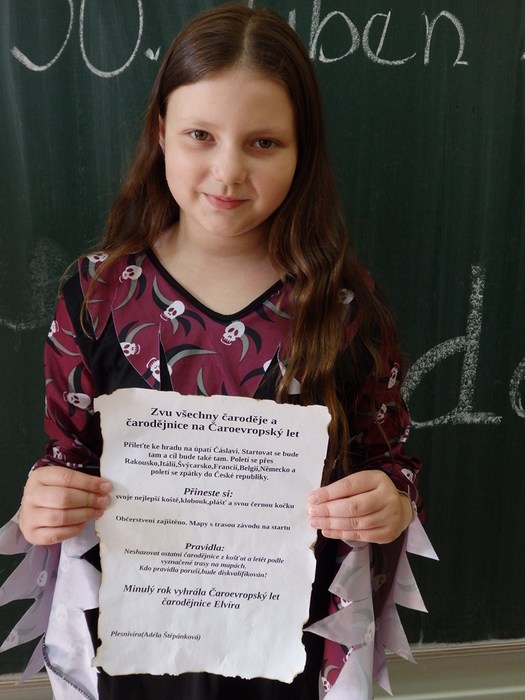 30. duben
Zvu všechny čaroděje a
čarodějnice na Čaroevropský let
Přileťte ke hradu na úpatí Čáslavi. Startovat se bude
tam a cíl bude také tam. Poletí se přes
Rakousko,Itálii,Švýcarsko,Francii,Belgii,Německo a
poletí se zpátky do České republiky.
Přineste si:
svoje nejlepší koště,klobouk,plášť a svou černou kočku
Občerstvení zajištěno. Mapy s trasou závodu na startu
Pravidla:
Neshazovat ostatní čarodějnice z košťat a letět podle
vyznačené trasy na mapách.
Kdo pravidla poruší,bude diskvalifikován!
Minulý rok vyhrála Čaroevropský let
čarodějnice Elvíra
Plesnivíra(Adéla Štěpánková)